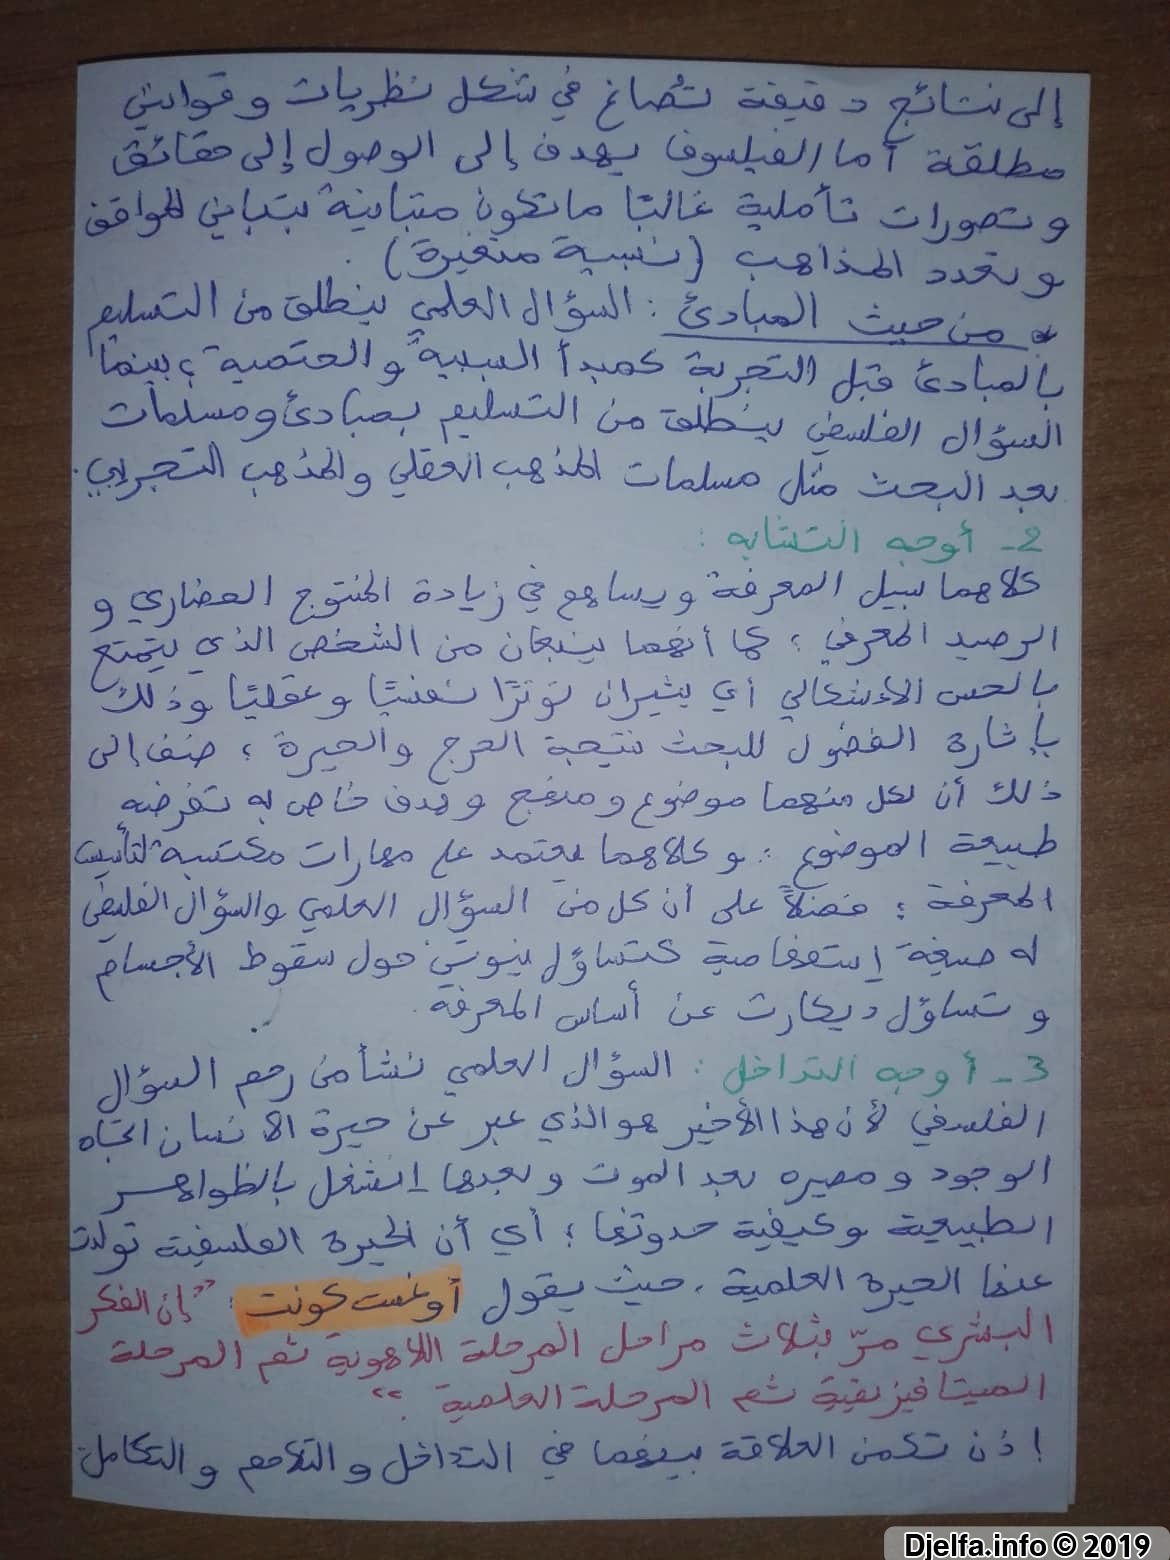 إلى نتائج دقيقة تُصاغ في شكل نظريات وقوانين
مطلقة أما الفيلسوف يهدف إلى الوصول إلى حقائق
وتصورات تأملية غالبًا ما تكون متباينة بتباين المواقف
وتعدد المذاهب (نسبية متغيرة).
* من حيث المبادئ: السؤال العلمي ينطلق من التسليم
بالمبادئ قبل التجربة كمبدأ السببية والحتمية، بينما
السؤال الفلسفي ينطلق من التسليم بمبادئ ومسلمات
بعد البحث مثل مسلمات المذهب العقلي والمذهب التجريبي.
2- أوجه التشابه:
كلاهما سبيل المعرفة ويساهم في زيادة المنتوج الحضاري و
الرصيد المعرفي؛ كما أنهما ينبعان من الشخص الذي يتمتع
بالحس الإشكالي أي يثيران توترًا نفسيًا وعقليًا وذلك
بإثارة الفضول للبحث نتيجة الحرج والحيرة؛ ضف إلى
ذلك أن لكل منهما موضوع ومنهج وهدف خاص به تفرضه
طبيعة الموضوع؛ وكلاهما يعتمد على مهارات مكتسبة لتأسيس
المعرفة؛ فضلاً على أن كل من السؤال العلمي والسؤال الفلسفي
له صيغة إستفهامية كتساؤل نيوتن حول سقوط الأجسام
وتساؤل ديكارت عن أساس المعرفة.
3- أوجه التداخل: السؤال العلمي نشأ من رحم السؤال
الفلسفي لأن هذا الأخير هو الذي عبر عن حيرة الانسان اتجاه
الوجود ومصيره بعد الموت وبعدها إنشغل بالظواهر
الطبيعية وكيفية حدوثها؛ أي أن الحيرة الفلسفية تولدت
عنها الحيرة العلمية، حيث يقول أوغست كونت: "إن الفكر
البشري مرّ بثلاث مراحل المرحلة اللاهوتية ثم المرحلة
الميتافيزيقية ثم المرحلة العلمية."
إذن تكمن العلاقة بينهما في التداخل والتلاحم والتكامل
Djelfa.info © 2019